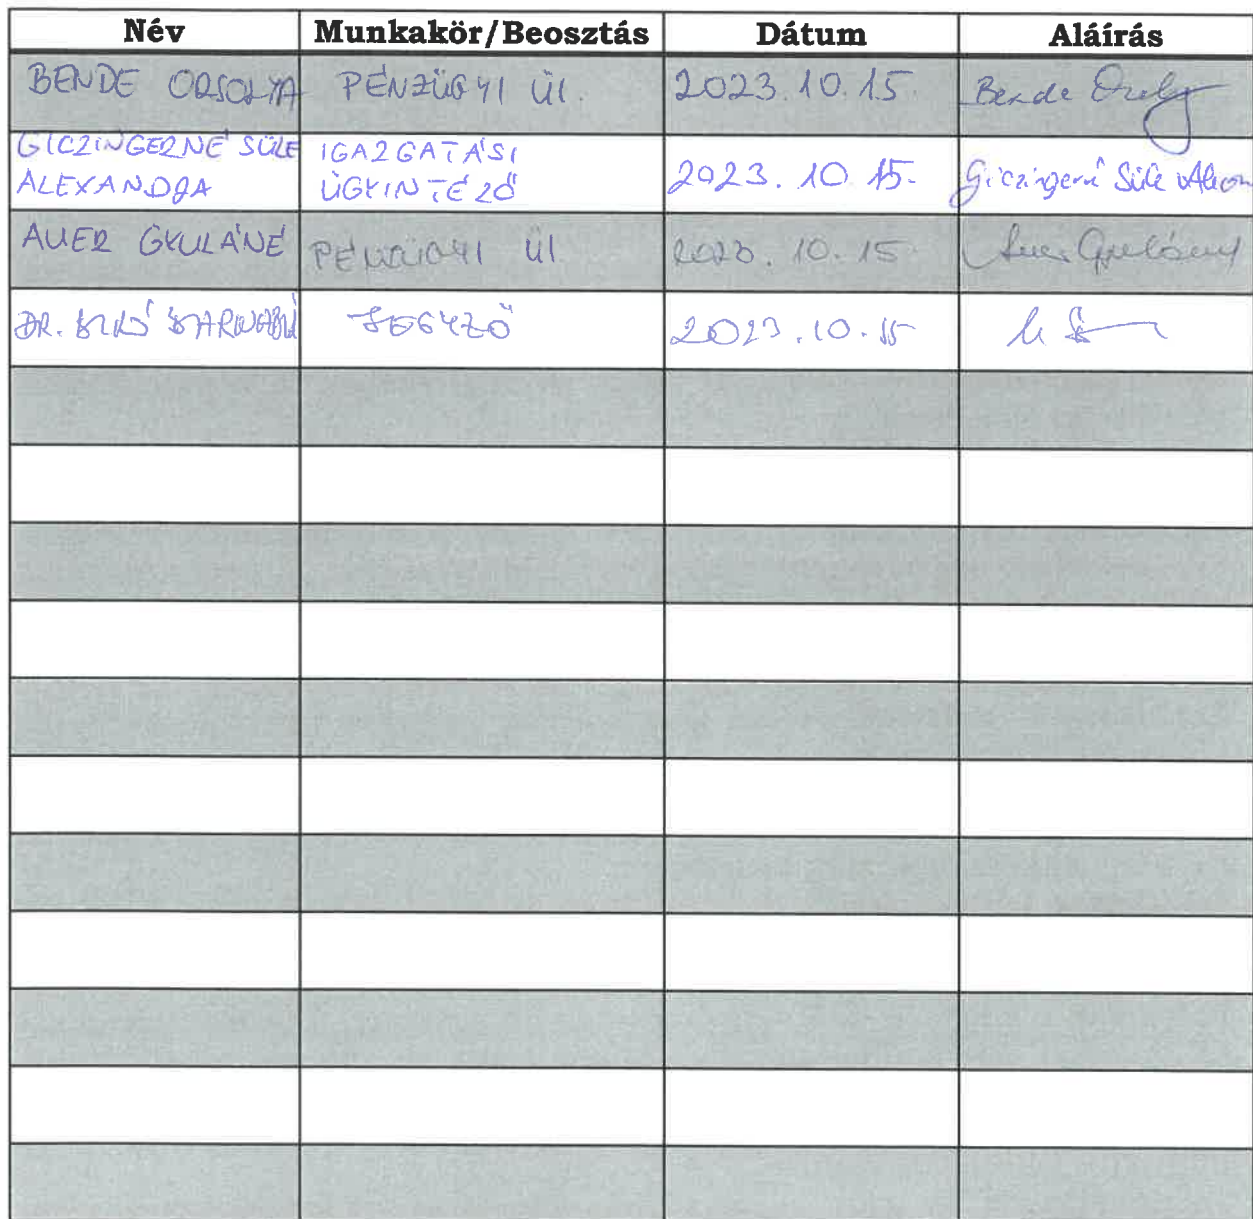 Név Munkakör/Beosztás Dátum Aláírás
BENDE ORSOLYA PÉNZÜGYI ÜI. 2023.10.15. Bende Orsoly
GICZINGERNÉ SÜLE IGAZGATÁSI
ALEXANDRA ÜGYINTÉZŐ 2023.10.15. Giczingerné Süle
AUER GYULÁNÉ PÉNZÜGYI ÜI 2023.10.15 Auer Gyuláné
DR. JEGYZŐ 2023.10.15